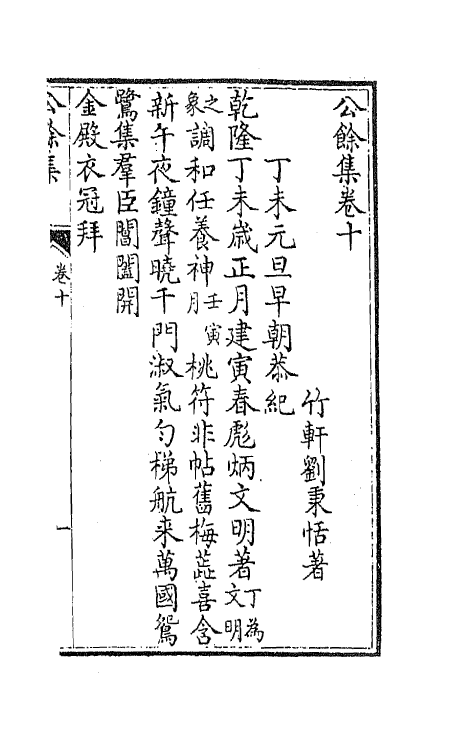 公餘集卷十
竹軒劉秉恬著
丁未元旦早朝恭紀
乾隆丁未歲正月建寅春彪炳文明著丁為文明
之象調和任養神壬寅月桃符非帖舊梅蕋喜含
新午夜鐘聲曉千門淑氣勻梯航来萬國鴛
鷺集羣臣閶闔開
金殿衣冠拜
公餘集
卷十
一